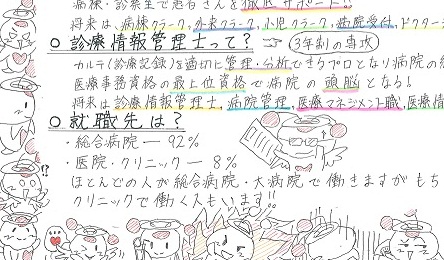 病棟・診察室で患者さんを徹底サポート!!
将来は、病棟クラーク, 外来クラーク, 小児クラーク, 病院受付, ドクター
○ 診療情報管理士って? ☞ 3年制の専攻
カルテ(診療記録)を適切に管理・分析できるプロとなり病院の経
医療事務資格の最上位資格で病院の頭脳となる!
将来は診療情報管理士, 病院管理, 医療マネジメント職, 医療情
○ 就職先は?
・総合病院ー92%
・医院・クリニックー8%
ほとんどの人が総合病院・大病院で働きますがもち
クリニックで働く人もいます!!
!?